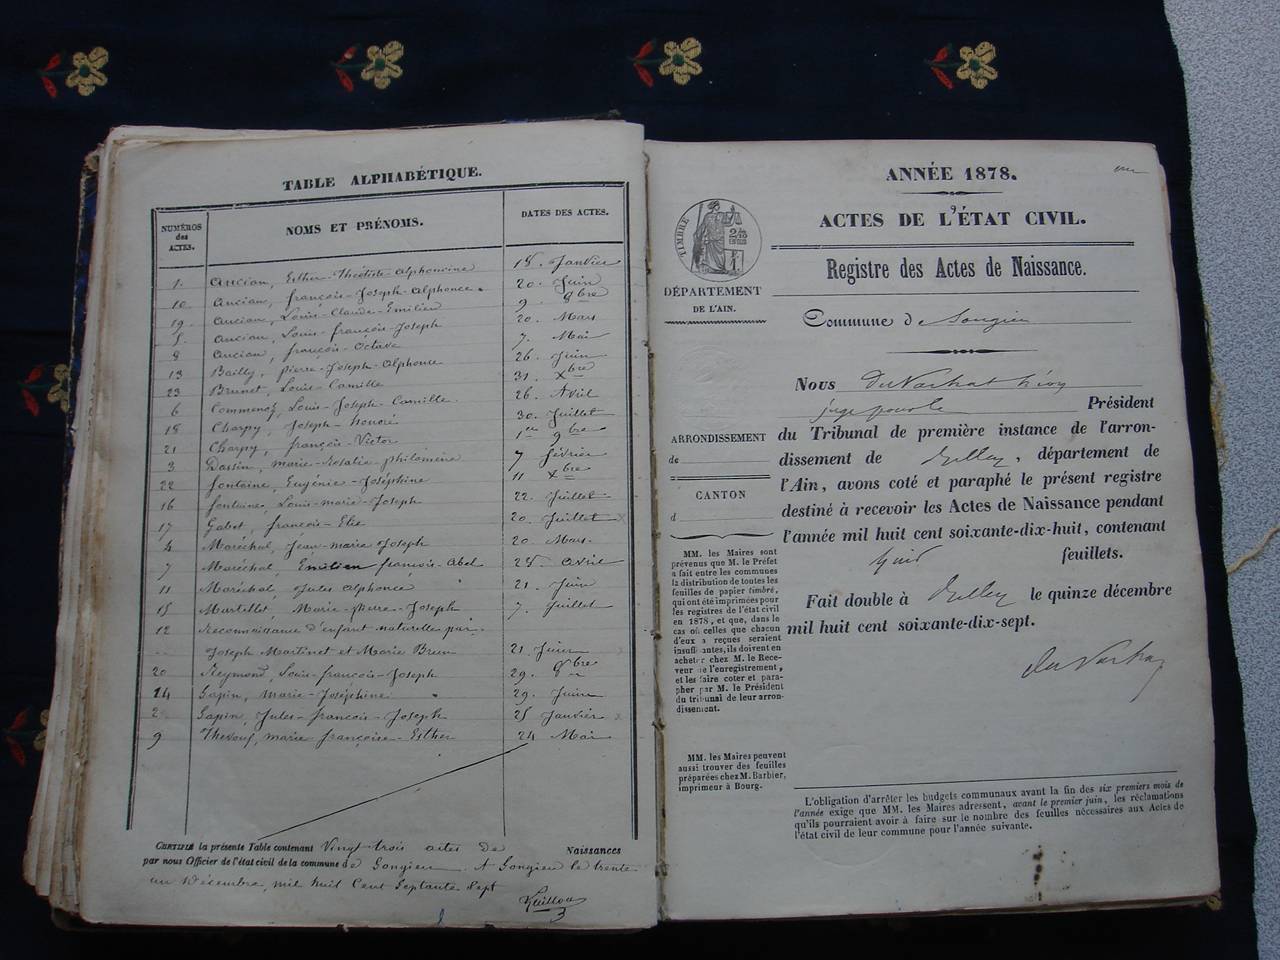 TABLE ALPHABÉTIQUE.
NUMÉROS des ACTES. NOMS ET PRÉNOMS. DATES DES ACTES.
1. Ancian, Esther-Théotiste-Alphonsine 18. Janvier
10 Ancian, françois-Joseph-Alphonce. 20. Juin
19 Ancian, Louis-Claude-Emilien 9. 8bre
5. Ancian, Louis-françois-Joseph 20. Mars
8 Ancian, françois-Octave 7. Mai
13 Bailly, pierre-Joseph-Alphonce 26. Juin
23 Brunet, Louis-Camille 31. Xbre
6 Commenoz, Louis-Joseph-Camille. 26. Avril
18 Charpy, Joseph-honoré 30. Juillet
21 Charpy, françois-Victor 1er 9bre
3 Dassin, marie-Rosalie-philomène 7 février
22 fontaine, Eugénie-Joséphine 11 Xbre
16 fontaine, Louis-marie-Joseph 22. Juillet
17 Gabet, françois-Elie 20. Juillet
4 Maréchal, Jean-marie Joseph 20. Mars.
7 Maréchal, Emilien françois-Abel 28. avril
11 Maréchal, Jules alphonce 21. Juin
15 Martillet, Marie-pierre-Joseph 7. Juillet
12 Reconnaissance d'enfant naturelle par
Joseph Martinet et Marie Brun 21. Juin
20 Reymond, Louis-françois-Joseph 29. 8bre
14 Sapin, Marie-Joséphine 29. Juin
2 Sapin, Jules-françois-Joseph 25 Janvier
9 marie françoise-Esther 24 Mai
CERTIFIÉ la présente Table contenant Vingt trois actes de Naissances
par nous Officier de l'état civil de la commune de Songieu. A Songieu le trente
un Décembre, mil huit Cent Septante Sept
ANNÉE 1878.
ACTES DE L'ÉTAT CIVIL.
TIMBRE
2/10
EN SUS
Registre des Actes de Naissance.
DÉPARTEMENT
DE L'AIN.
Commune d Songieu
Nous
juge pour le Président
du Tribunal de première instance de l'arron-
dissement de Belley, département de
l'Ain, avons coté et paraphé le présent registre
destiné à recevoir les Actes de Naissance pendant
l'année mil huit cent soixante-dix-huit, contenant
huit feuillets.
Fait double à Belley le quinze décembre
mil huit cent soixante-dix-sept.
ARRONDISSEMENT
de
CANTON
d
MM. les Maires sont
prévenus que M. le Préfet
a fait entre les communes
la distribution de toutes les
feuilles de papier timbré,
qui ont été imprimées pour
les registres de l'état civil
en 1878, et que, dans le
cas où celles que chacun
d'eux a reçues seraient
insuffisantes, ils doivent en
acheter chez M. le Rece-
veur de l'enregistrement,
et les faire coter et para-
pher par M. le Président
du tribunal de leur arron-
dissement.
MM. les Maires peuvent
aussi trouver des feuilles
préparées chez M. Barbier,
imprimeur à Bourg.
L'obligation d'arrêter les budgets communaux avant la fin des six premiers mois de
l'année exige que MM. les Maires adressent, avant le premier juin, les réclamations
qu'ils pourraient avoir à faire sur le nombre des feuilles nécessaires aux Actes de
l'état civil de leur commune pour l'année suivante.